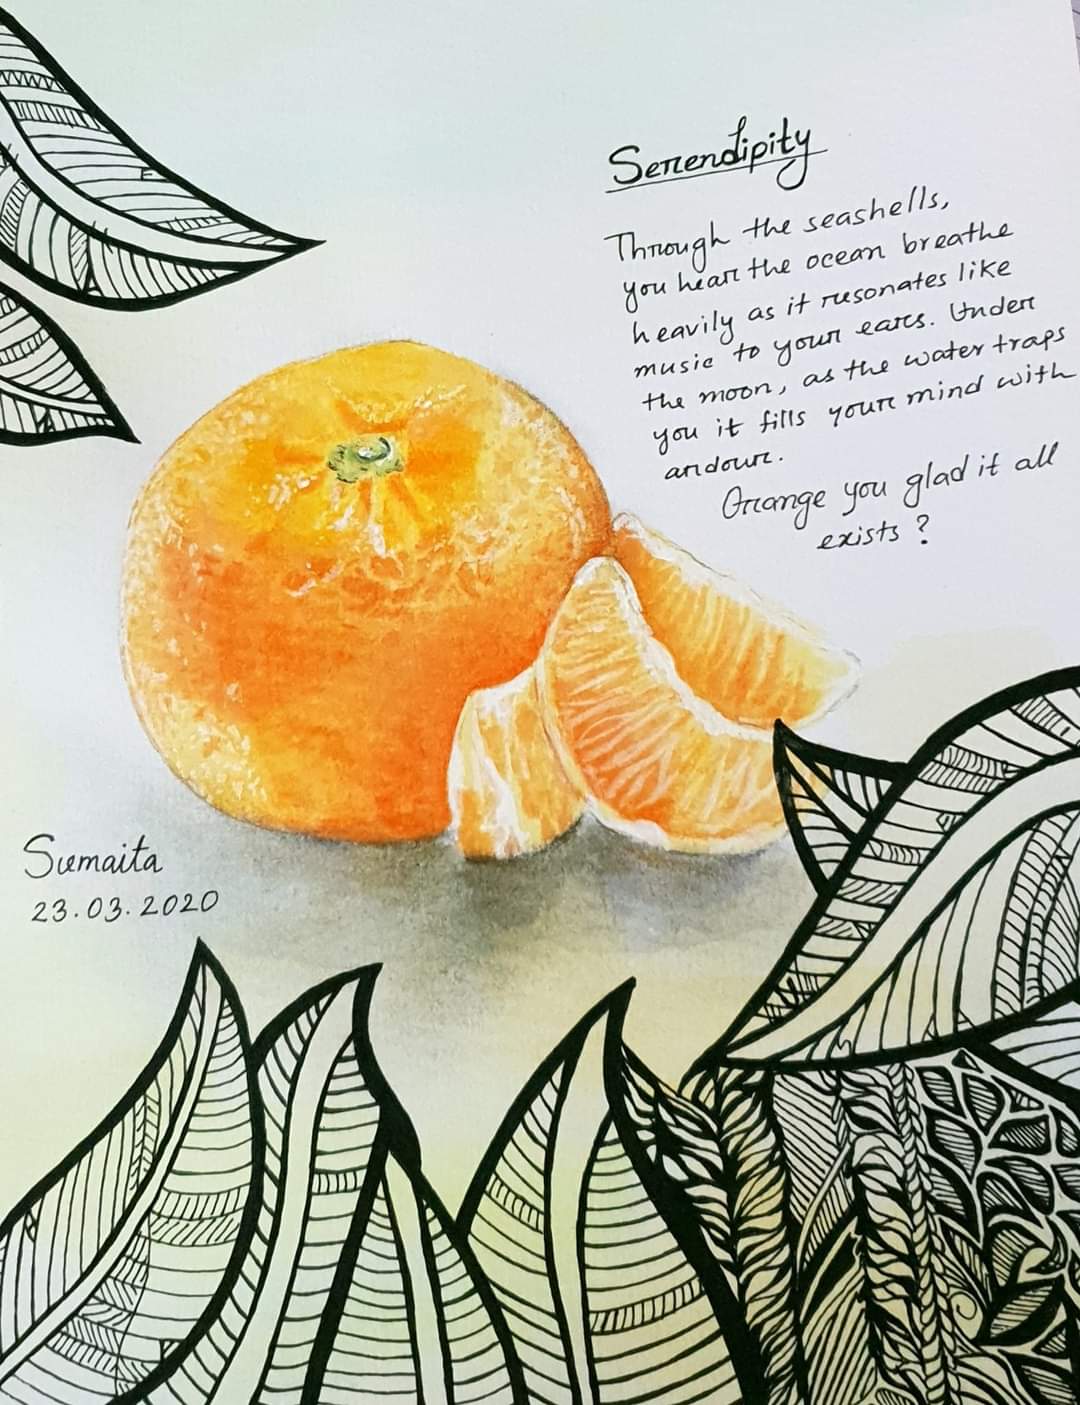 Serendipity
Through the seashells,
you hear the ocean breathe
heavily as it resonates like
music to your ears. Under
the moon, as the water traps
you it fills your mind with
ardour.
Orange you glad it all
exists?
Sumaita
23.03.2020